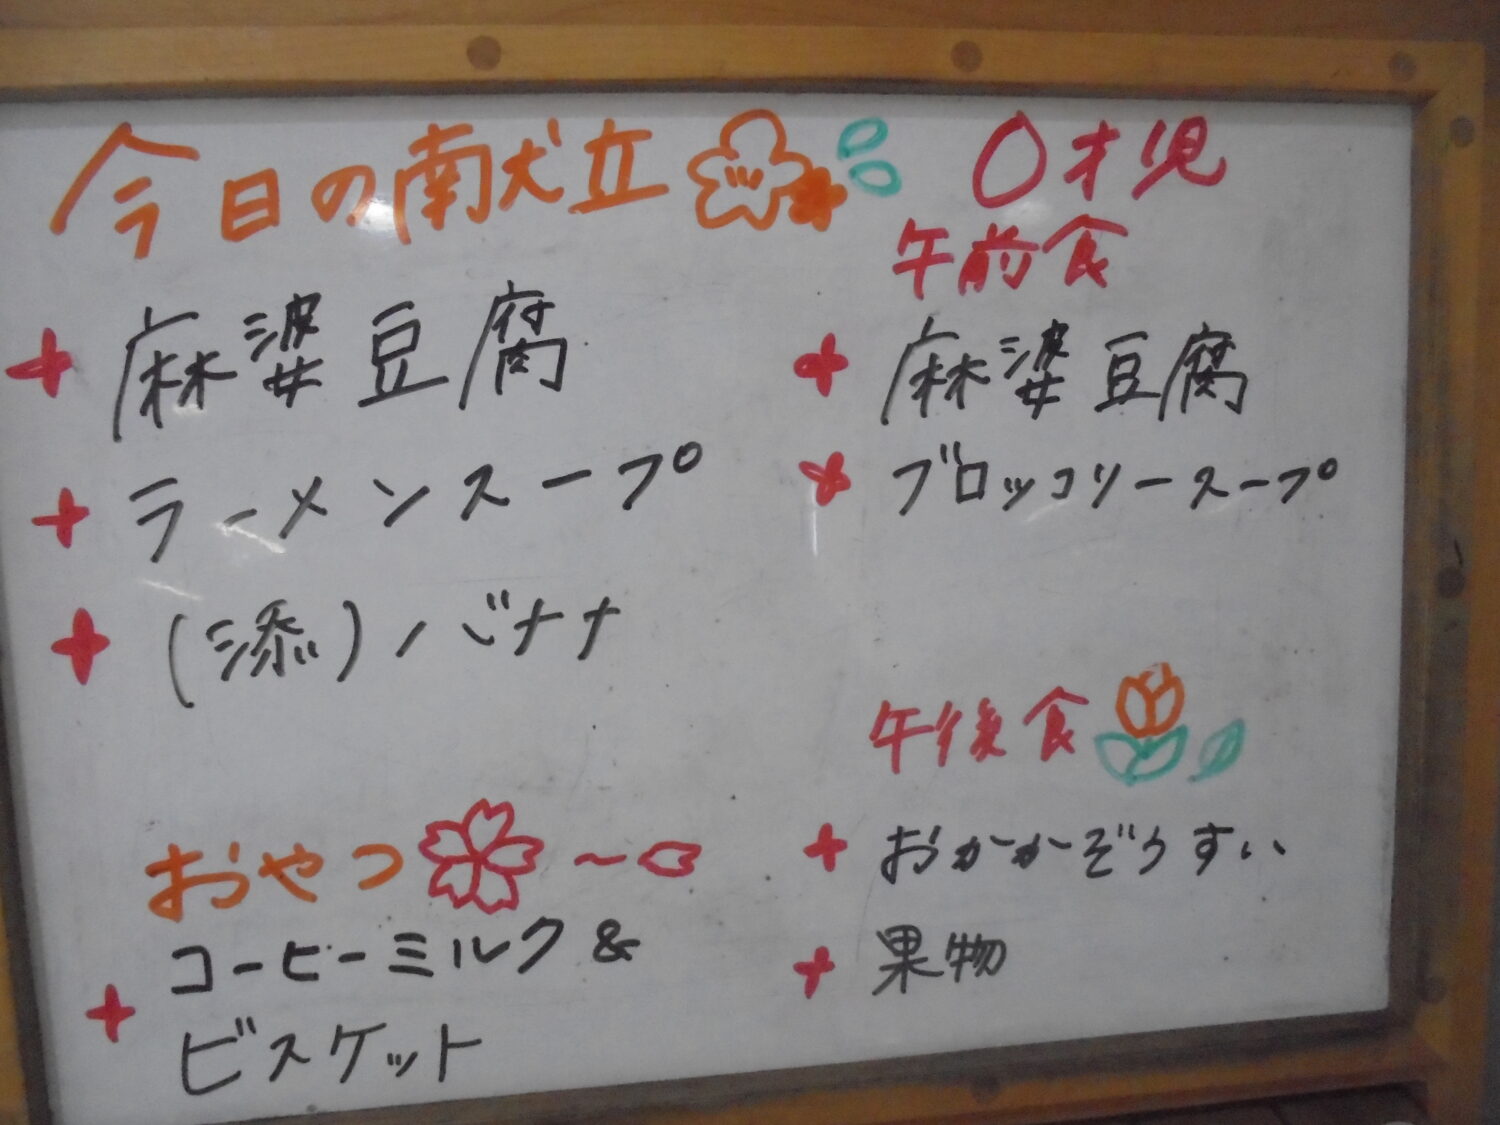 今日の献立
麻婆豆腐
ラーメンスープ
(添)バナナ
おやつ
コーヒーミルク&
ビスケット
0才児
午前食
麻婆豆腐
ブロッコリースープ
午後食
おかかぞうすい
果物